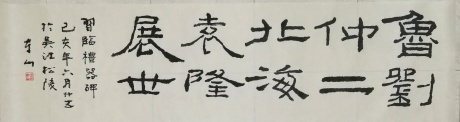 魯劉
仲二
北海
袁隆
展世
習臨禮器碑
己亥年六月廿五
於吳江松陵